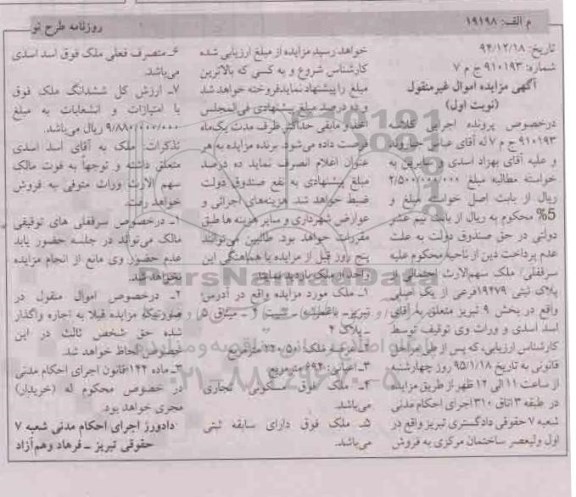 م الف: ۱۹۱۹۸
روزنامه طرح نو
تاریخ: ۹۴/۱۲/۱۸
شماره: ۹۱۰۱۹۳ ج م ۷
آگهی مزایده اموال غیرمنقول
(نوبت اول)
درخصوص پرونده اجرایی کلاسه
۹۱۰۱۹۳ ج م ۷ له آقای عباس
و علیه آقای بهزاد اسدی و سایرین به
خواسته مطالبه مبلغ ۲/۵۰۰/۰۰۰/۰۰۰
ریال از بابت اصل خواسته مبلغ و
5% محکوم به ریال از بابت نیم عشر
دولتی در حق صندوق دولت به علت
عدم پرداخت دین از ناحیه محکوم علیه
سرقفلی، ملک سهم‌الارث احتمالی از
پلاک ثبتی ۱۹۴۷۹ فرعی از یک اصلی
واقع در بخش ۹ تبریز متعلق به آقای
اسد اسدی و وراث وی توقیف توسط
کارشناس ارزیابی، که پس از طی مراحل
قانونی به تاریخ ۹۵/۱/۱۸ روز چهارشنبه
از ساعت ۱۱ الی ۱۲ ظهر از طریق مزایده
در طبقه ۳ اتاق ۳۱۰ اجرای احکام مدنی
شعبه ۷ حقوقی دادگستری تبریز واقع در
اول ولیعصر ساختمان مرکزی به فروش
خواهد رسید مزایده از مبلغ ارزیابی شده
کارشناس شروع و به کسی که بالاترین
مبلغ را پیشنهاد نماید فروخته خواهد شد
و ده درصد مبلغ پیشنهادی فی‌المجلس
اخذ و مابقی حداکثر ظرف مدت یک‌ماه
فرصت داده می‌شود. برنده مزایده به هر
عنوان اعلام انصراف نماید ده درصد
مبلغ پیشنهادی به نفع صندوق دولت
ضبط خواهد شد. هزینه‌های اجرائی و
عوارض شهرداری و سایر هزینه ها طبق
مقررات خواهد بود. طالبین می‌توانند
پنج روز قبل از مزایده با هماهنگی این
واحد از ملک بازدید نمایند.
۱ـ ملک مورد مزایده واقع در آدرس
تبریز ـ ـ ـ میثاق ۵
ـ پلاک ۴
۲ـ عرصه ملک: مترمربع
۳ـ اعیانی: ۶۹۴ مترمربع
۴ـ ملک فوق مسکونی تجاری
می‌باشد.
۵ـ ملک فوق دارای سابقه ثبتی
می‌باشد.
۶ـ متصرف فعلی ملک فوق اسد اسدی
می‌باشد.
۷ـ ارزش کل ششدانگ ملک فوق
با امتیازات و انشعابات به مبلغ
۹/۸۸۰/۰۰۰/۰۰۰ ریال می‌باشد.
تذکرات: ملک به آقای اسد اسدی
متعلق داشته و توجهاً به فوت مالک
سهم الارث وراث متوفی به فروش
خواهد رفت.
۱ـ درخصوص سرقفلی های توقیفی
مالک می‌تواند در جلسه حضور یابد
عدم حضور وی مانع از انجام مزایده
نخواهد شد.
۲ـ درخصوص اموال منقول در
صورتیکه مزایده قبلا به اجاره واگذار
شده حق شخص ثالث در این
خصوص لحاظ خواهد شد.
۳ـ ماده ۱۴۲ قانون اجرای احکام مدنی
در خصوص محکوم له (خریدار)
مجری خواهد بود.
دادورز اجرای احکام مدنی شعبه ۷
حقوقی تبریز ـ فرهاد وهم‌آزاد
ParsNamadData